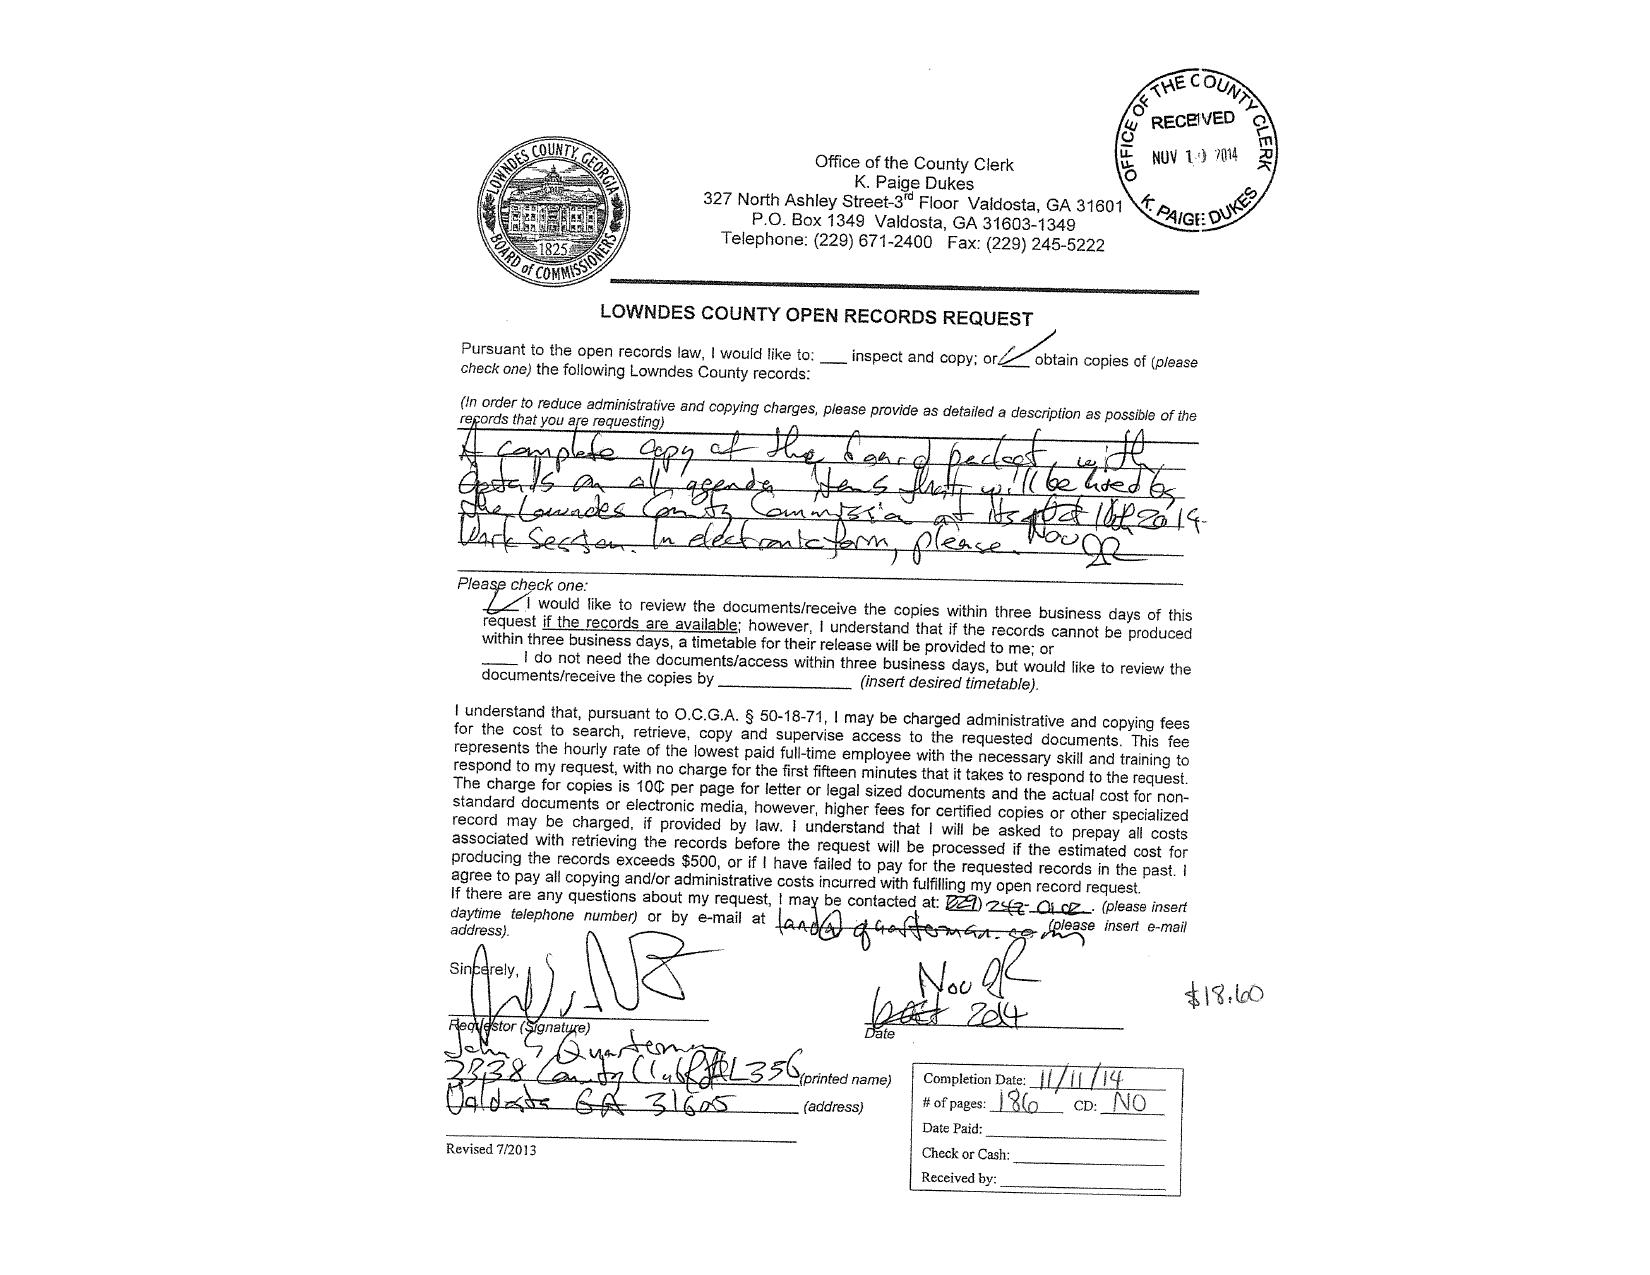 OFFICE OF THE COUNTY CLERK
RECEIVED
NOV 10 2014
K. PAIGE DUKES
LOWNDES COUNTY, GEORGIA
1825
BOARD of COMMISSIONERS
Office of the County Clerk
K. Paige Dukes
327 North Ashley Street-3rd Floor Valdosta, GA 31601
P.O. Box 1349 Valdosta, GA 31603-1349
Telephone: (229) 671-2400 Fax: (229) 245-5222
LOWNDES COUNTY OPEN RECORDS REQUEST
Pursuant to the open records law, I would like to: ___ inspect and copy; or ___ obtain copies of (please
check one) the following Lowndes County records:
(In order to reduce administrative and copying charges, please provide as detailed a description as possible of the
records that you are requesting)
A complete copy of the board packet, with
details on all agenda items that will be heard by
the Lowndes County Commission at its Oct 2014
Work Session. In electronic form, please. Nov
Please check one:
I would like to review the documents/receive the copies within three business days of this
request if the records are available; however, I understand that if the records cannot be produced
within three business days, a timetable for their release will be provided to me; or
____ I do not need the documents/access within three business days, but would like to review the
documents/receive the copies by ______________ (insert desired timetable).
I understand that, pursuant to O.C.G.A. § 50-18-71, I may be charged administrative and copying fees
for the cost to search, retrieve, copy and supervise access to the requested documents. This fee
represents the hourly rate of the lowest paid full-time employee with the necessary skill and training to
respond to my request, with no charge for the first fifteen minutes that it takes to respond to the request.
The charge for copies is 10¢ per page for letter or legal sized documents and the actual cost for non-
standard documents or electronic media, however, higher fees for certified copies or other specialized
record may be charged, if provided by law. I understand that I will be asked to prepay all costs
associated with retrieving the records before the request will be processed if the estimated cost for
producing the records exceeds $500, or if I have failed to pay for the requested records in the past. I
agree to pay all copying and/or administrative costs incurred with fulfilling my open record request.
If there are any questions about my request, I may be contacted at: (229) 242-0102. (please insert
daytime telephone number) or by e-mail at land@quarterman.com (please insert e-mail
address).
Sincerely,
Nov
Oct 2014
$18.60
Requestor (Signature)
Date
John S Quarterman
3338 Country Club Rd #L356 (printed name)
Valdosta GA 31605 (address)
Completion Date: 11/11/14
# of pages: 186 CD: NO
Date Paid:
Check or Cash:
Received by:
Revised 7/2013